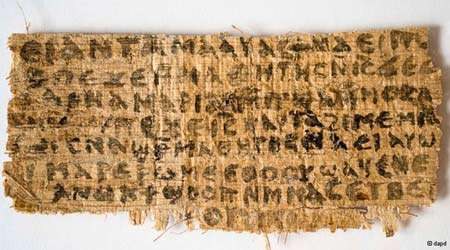 ⲛⲁⲉⲓ ⲁⲛ ⲧⲁⲙⲁⲁⲩ ⲁⲥϯ ⲛⲁⲉⲓ ⲡ
ⲡⲉϫⲉ ⲙⲙⲁⲑⲏⲧⲏⲥ ⲛⲓⲥ ϫⲉ ⲥ
ⲁⲣⲛⲁ ⲙⲁⲣⲓⲁⲙ ⲙⲡϣⲁ ⲙⲙⲟⲥ ⲁ
ⲡⲉϫⲉ ⲓⲥ ⲛⲁⲩ ⲧⲁϩⲓⲙⲉ ⲙⲛ
ⲥⲛⲁϣⲣⲙⲁⲑⲏⲧⲏⲥ ⲛⲁⲉⲓ ⲁⲩⲱ
ⲓ ⲙⲁⲣⲉⲣⲱⲙⲉ ⲉⲑⲟⲟⲩ ϣⲁϥⲉ ⲛⲉ
ⲁⲛⲟⲕ ϯϣⲟⲟⲡ ⲛⲙⲙⲁⲥ ⲉⲧⲃⲉ
© dapd